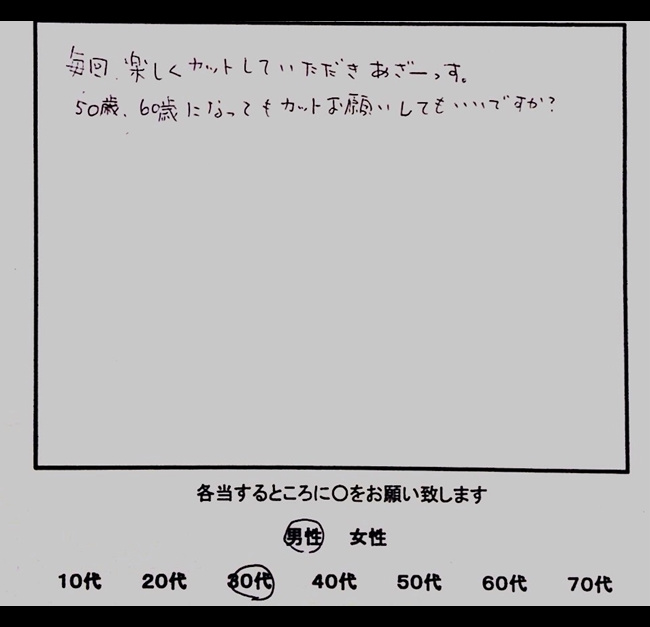 毎回、楽しくカットしていただきあざーっす。
50歳、60歳になってもカットお願いしてもいいですか?
各当するところに〇をお願い致します
男性 女性
10代 20代 30代 40代 50代 60代 70代